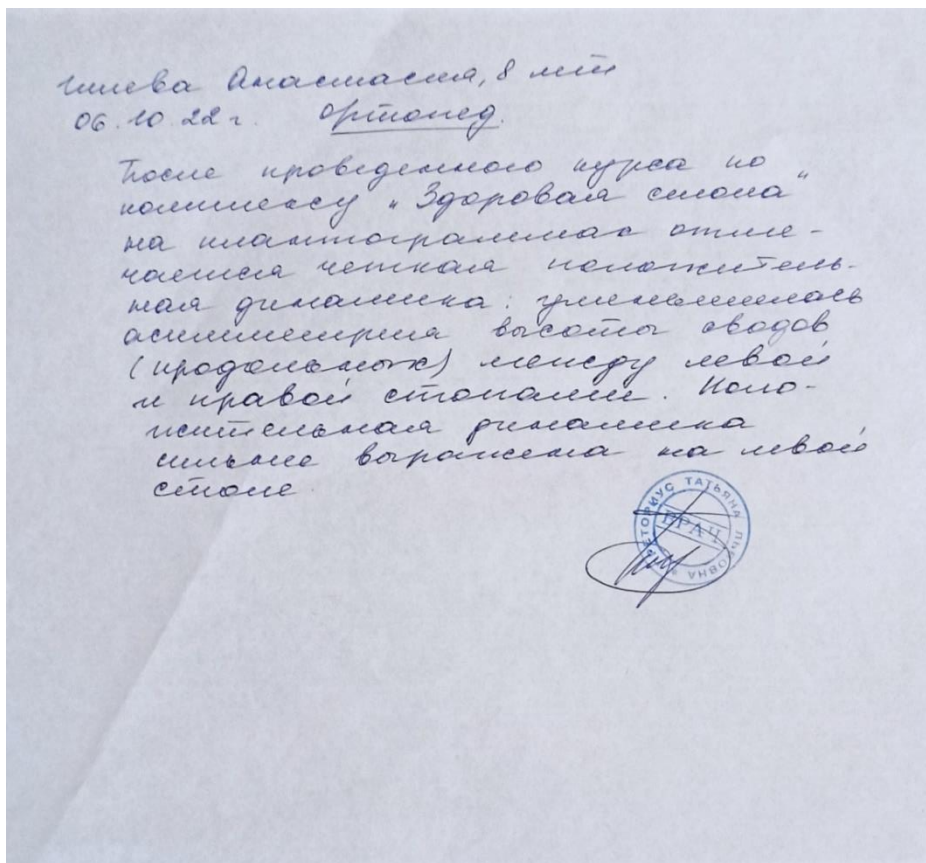 Анастасия, 8 лет
06.10.22 г. Ортопед.
После проведенного курса по
комплексу „Здоровая стопа"
на плантограммах отме-
чается четкая положитель-
ная динамика: уменьшилась
асимметрия высоты сводов
(продольных) между левой
и правой стопами. Поло-
жительная динамика
сильнее выражена на левой
стопе.
ТАТЬЯНА ЛЬВОВНА
ВРАЧ